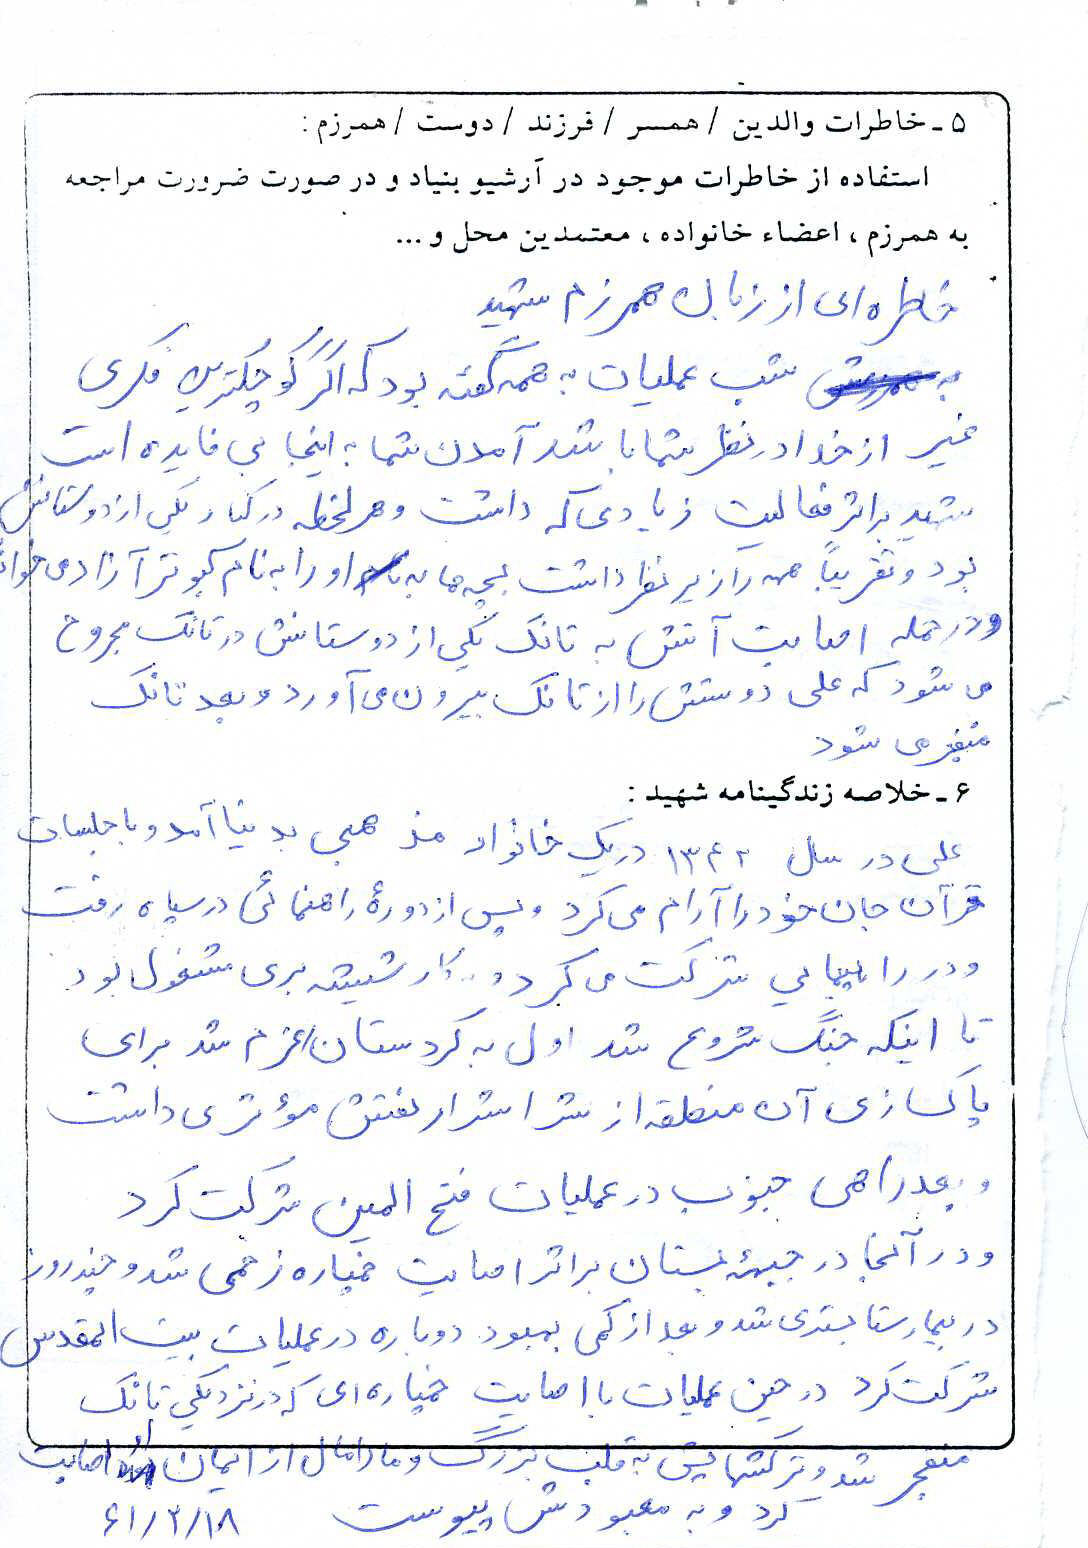 ۵ ـ خاطرات والدین / همسر / فرزند / دوست / همرزم :
استفاده از خاطرات موجود در آرشیو بنیاد و در صورت ضرورت مراجعه
به همرزم ، اعضاء خانواده ، معتمدین محل و ...
خاطره ای از زبان همرزم شهید
شب عملیات به همه گفته بود که اگر کوچکترین فکری
غیر از خدا در نظر شما باشد آمدن شما به اینجا بی فایده است
شهید براثر فعالیت زیادی که داشت و هر لحظه در کنار یکی از دوستانش
بود و تقریباً همه را زیر نظر داشت بچه ها او را به نام کبوتر آزاد می خواندند
و در حمله اصابت آتش به تانک یکی از دوستانش در تانک مجروح
می شود که علی دوستش را از تانک بیرون می آورد و بعد تانک
منفجر می شود
۶ ـ خلاصه زندگینامه شهید :
علی در سال ۱۳۴۲ در یک خانواده مذهبی بدنیا آمد و با جلسات
قرآن جان خود را آرام می کرد و پس از دورهٔ راهنمائی در سپاه رفت
و در راهپیمایی شرکت می کرد و به کار شیشه بری مشغول بود
تا اینکه جنگ شروع شد اول به کردستان اعزام شد برای
پاکسازی آن منطقه از شر اشرار نقش مؤثری داشت
و بعد راهی جنوب در عملیات فتح المبین شرکت کرد
و در آنجا در جبههٔ بستان براثر اصابت خمپاره زخمی شد و چند روز
در بیمارستان بستری شد و بعد از کمی بهبود دوباره در عملیات بیت المقدس
شرکت کرد در حین عملیات با اصابت خمپاره ای که در نزدیکی تانک
منفجر شد و ترکشهایش به قلب بزرگ و مالامال از ایمان او اصابت
کرد و به معبودش پیوست ۶۱/۳/۱۸